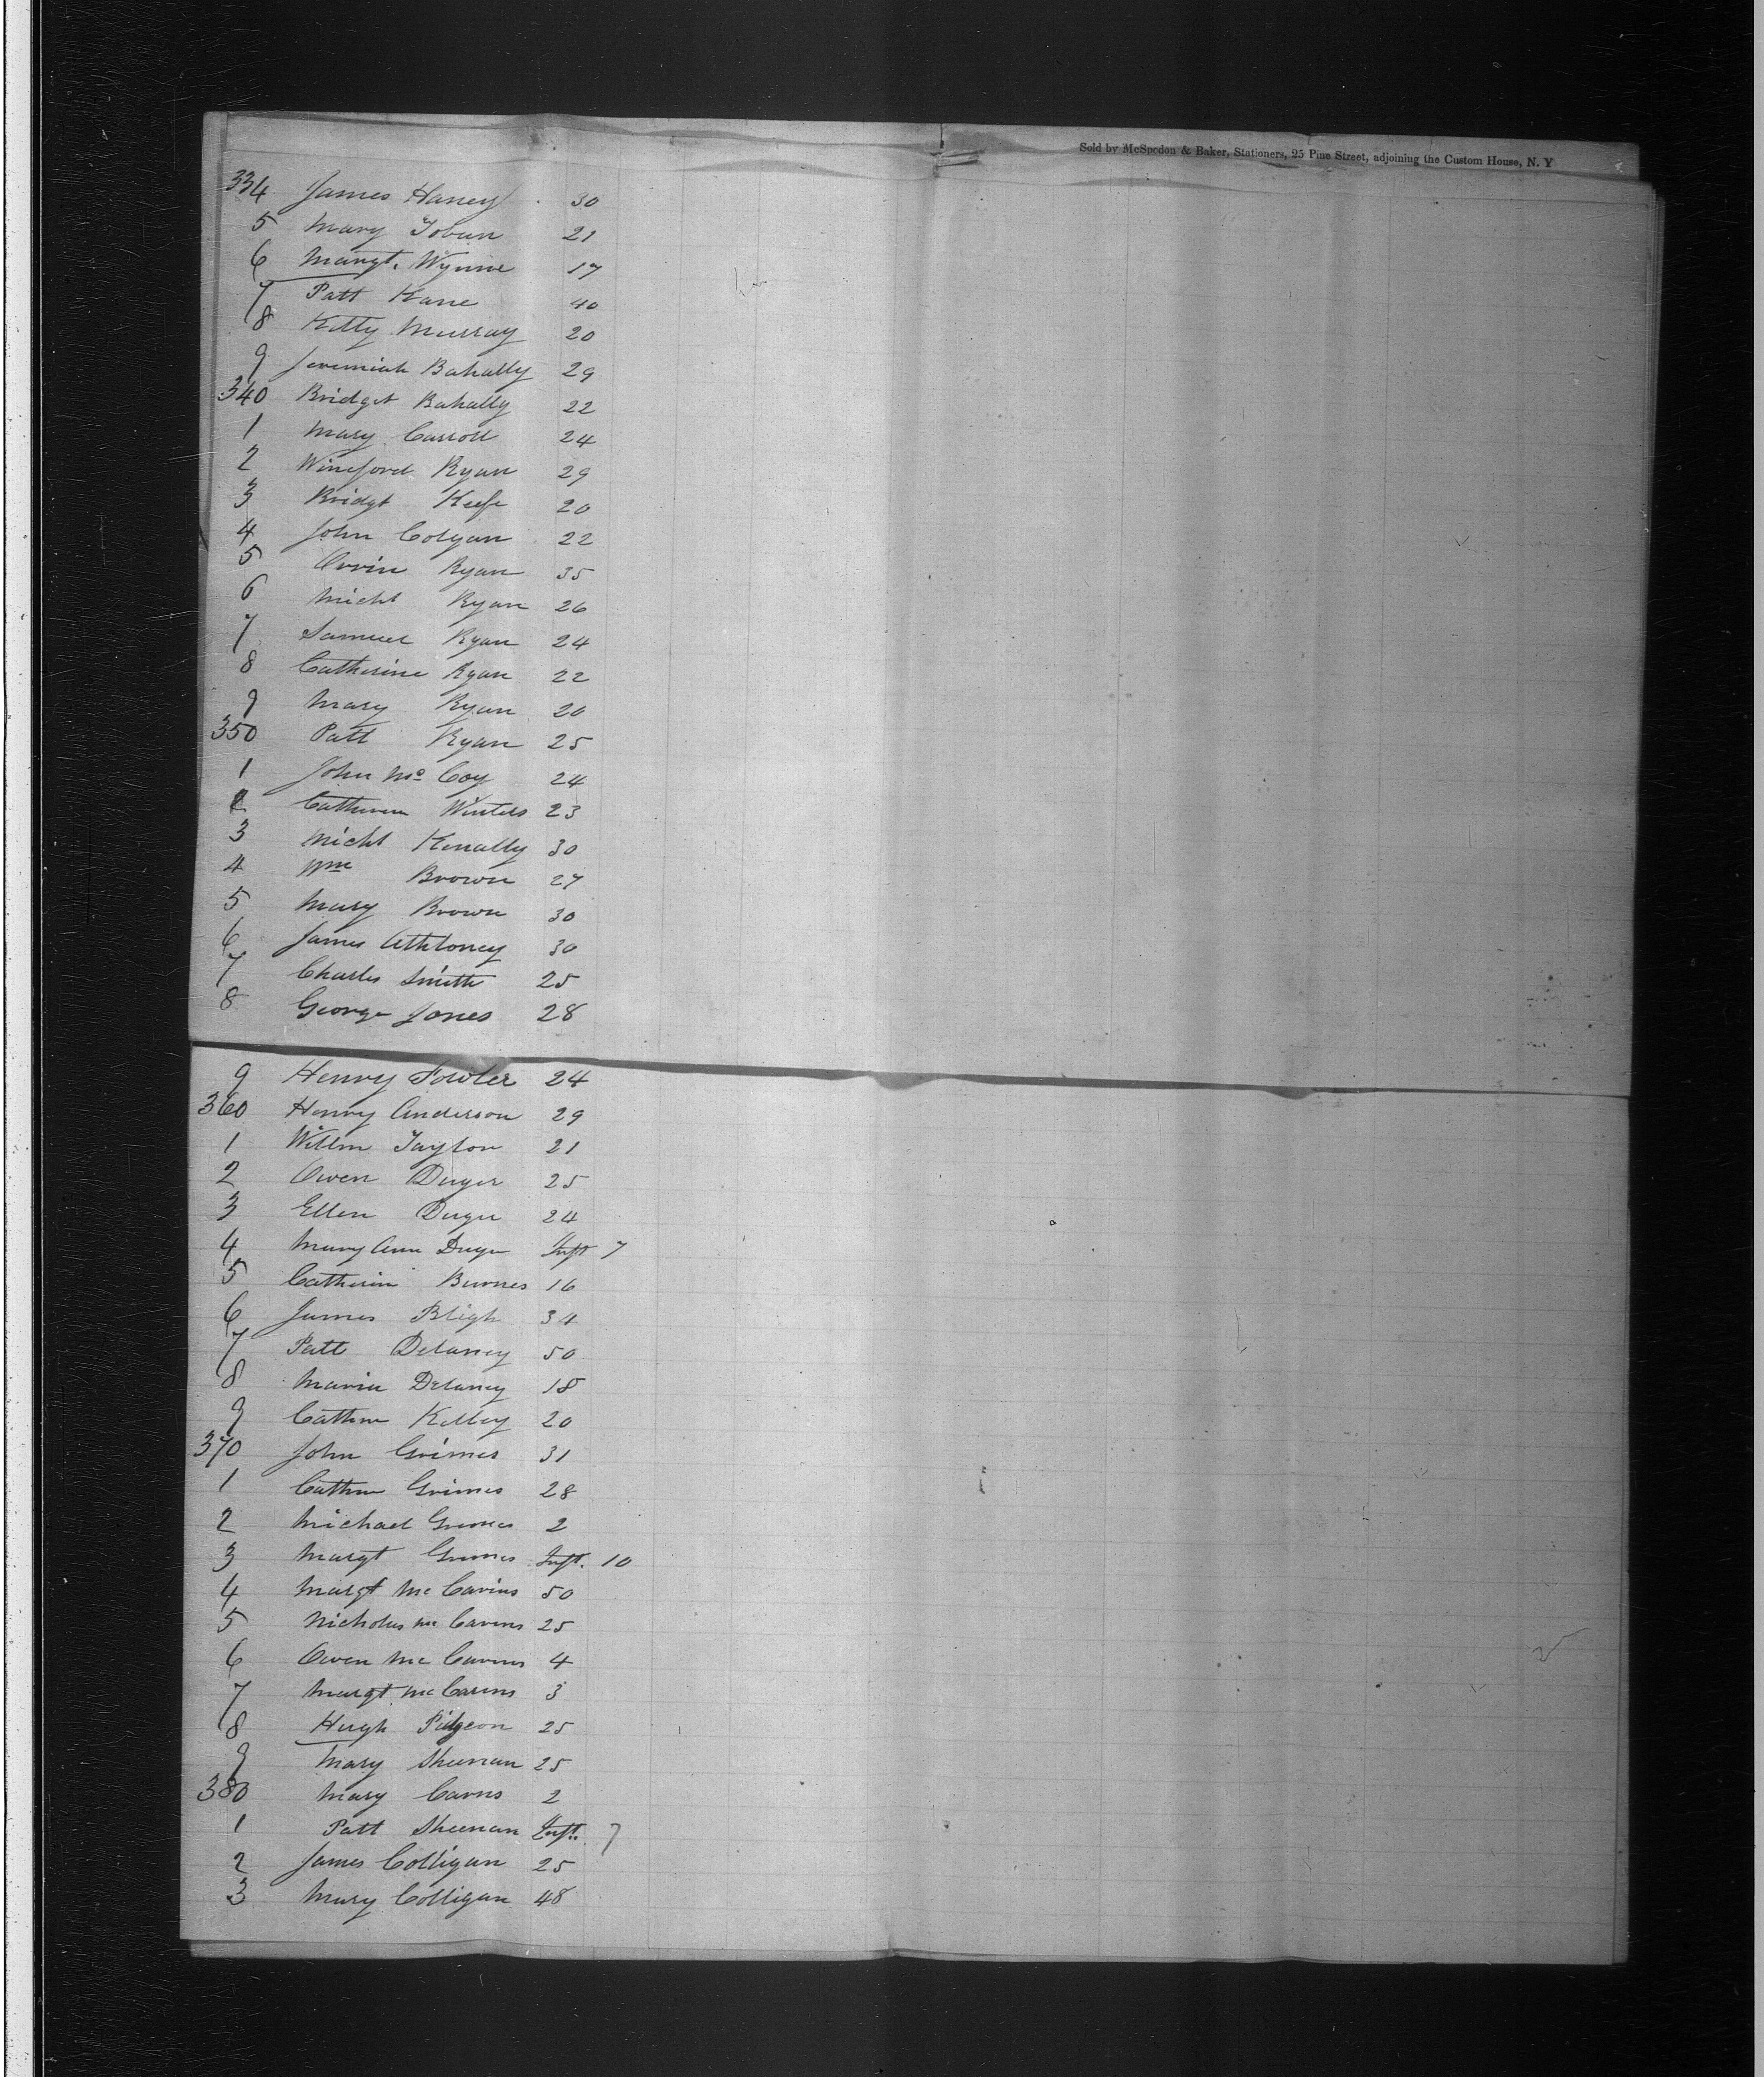 Sold by McSpedon & Baker, Stationers, 25 Pine Street, adjoining the Custom House, N. Y
334 James Haney 30
5 Mary Tobun 21
6 Margt. Wynne 17
7 Patt Kane 40
8 Kitty Murray 20
9 Jeremiah Bahally 29
340 Bridget Bahally 22
1 Mary Carroll 24
2 Wineford Ryan 29
3 Bridgt Keefe 20
4 John Colgan 22
5 Orrin Ryan 35
6 Michl Ryan 26
7 Samuel Ryan 24
8 Catherine Ryan 22
9 Mary Ryan 20
350 Patt Ryan 25
1 John McCoy 24
2 Catheren Winters 23
3 Michl Kenally 30
4 Wm Brown 27
5 Mary Brown 30
6 James Athloney 30
7 Charles Smith 25
8 George Jones 28
9 Henry Fowler 24
360 Henry Anderson 29
1 Willm Taylor 21
2 Owen Duger 25
3 Ellen Duger 24
4 Mary Ann Duger Inft 7
5 Catherin Burnes 16
6 James Bligh 34
7 Patt Delaney 50
8 Maria Delaney 18
9 Cathrn Kelley 20
370 John Grimes 31
1 Cathrn Grimes 28
2 Michael Grimes 2
3 Margt Grimes Inft. 10
4 Margt McCavins 50
5 Nicholus McCavens 25
6 Owen McCavens 4
7 Margt McCavens 3
8 Hugh Pidgeon 25
9 Mary Sheenan 25
380 Mary Carns 2
1 Patt Sheenan Inft. 7
2 James Colligan 25
3 Mary Colligan 48